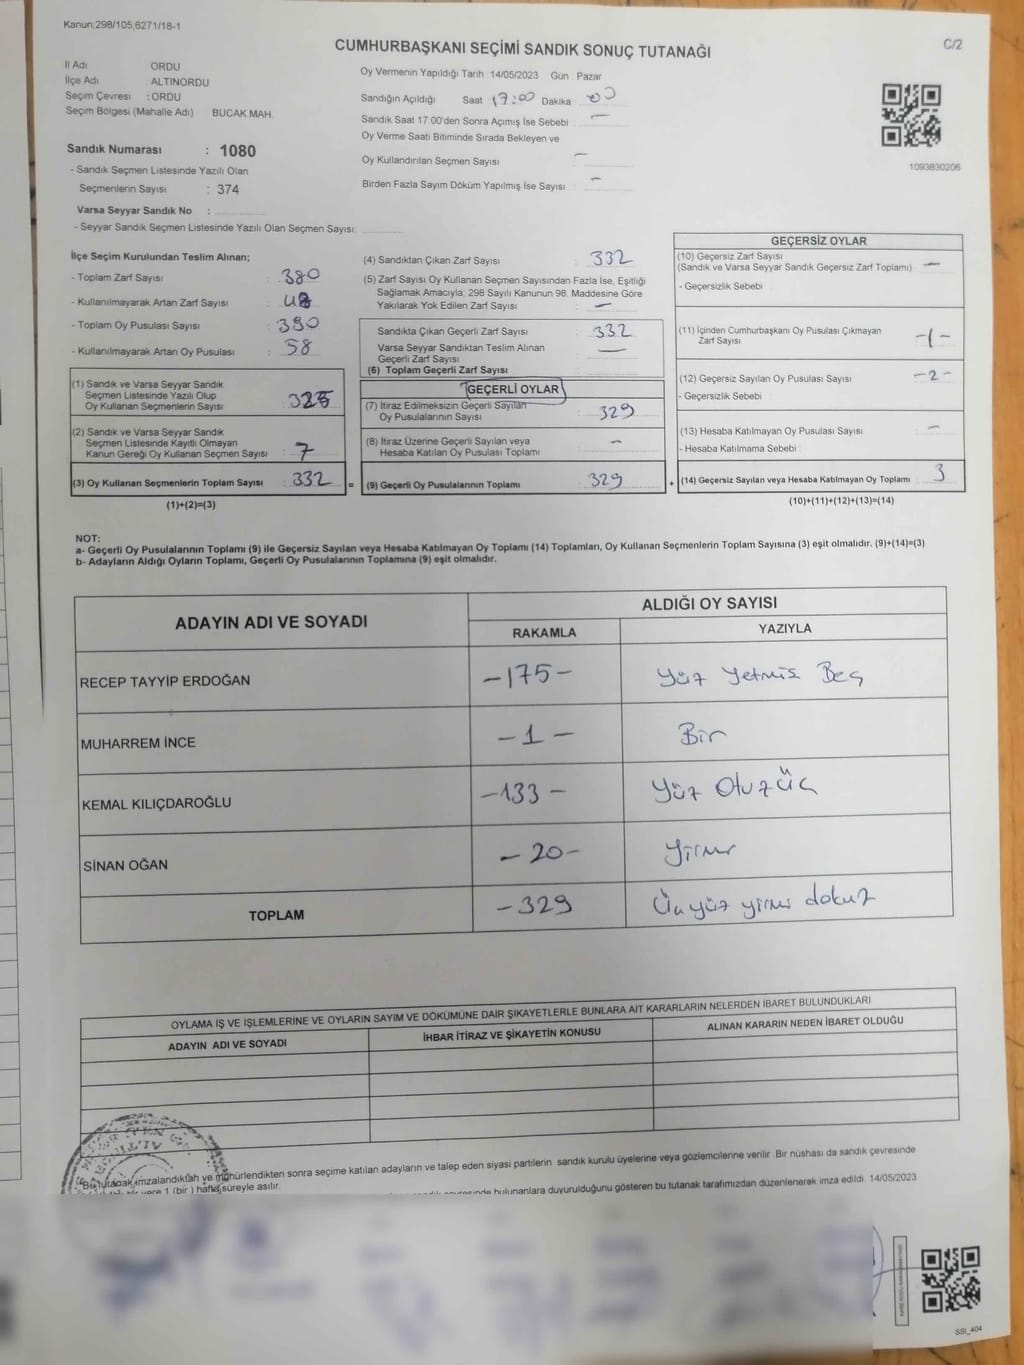 Kanun;298/105,6271/18-1
C/2
CUMHURBAŞKANI SEÇİMİ SANDIK SONUÇ TUTANAĞI
İl Adı ORDU
İlçe Adı ALTINORDU
Seçim Çevresi : ORDU
Seçim Bölgesi (Mahalle Adı) BUCAK MAH.
Sandık Numarası : 1080
- Sandık Seçmen Listesinde Yazılı Olan
Seçmenlerin Sayısı : 374
Varsa Seyyar Sandık No :
- Seyyar Sandık Seçmen Listesinde Yazılı Olan Seçmen Sayısı:
Oy Vermenin Yapıldığı Tarih 14/05/2023 Gün Pazar
Sandığın Açıldığı Saat 17:00 Dakika 00
Sandık Saat 17:00'den Sonra Açımış İse Sebebi : —
Oy Verme Saati Bitiminde Sırada Bekleyen ve
Oy Kullandırılan Seçmen Sayısı —
Birden Fazla Sayım Döküm Yapılmış İse Sayısı : —
1093830206
İlçe Seçim Kurulundan Teslim Alınan;
- Toplam Zarf Sayısı : 380
- Kullanılmayarak Artan Zarf Sayısı : 48
- Toplam Oy Pusulası Sayısı : 390
- Kullanılmayarak Artan Oy Pusulası : 58
(1) Sandık ve Varsa Seyyar Sandık
Seçmen Listesinde Yazılı Olup
Oy Kullanan Seçmenlerin Sayısı : 325
(2) Sandık ve Varsa Seyyar Sandık
Seçmen Listesinde Kayıtlı Olmayan
Kanun Gereği Oy Kullanan Seçmen Sayısı : 7
(3) Oy Kullanan Seçmenlerin Toplam Sayısı : 332 =
(1)+(2)=(3)
(4) Sandıktan Çıkan Zarf Sayısı : 332
(5) Zarf Sayısı Oy Kullanan Seçmen Sayısından Fazla İse, Eşitliği
Sağlamak Amacıyla; 298 Sayılı Kanunun 98. Maddesine Göre
Yakılarak Yok Edilen Zarf Sayısı : —
Sandıkta Çıkan Geçerli Zarf Sayısı : 332
Varsa Seyyar Sandıktan Teslim Alınan
Geçerli Zarf Sayısı : —
(6) Toplam Geçerli Zarf Sayısı :
GEÇERLİ OYLAR
(7) İtiraz Edilmeksizin Geçerli Sayılan
Oy Pusulalarının Sayısı : 329
(8) İtiraz Üzerine Geçerli Sayılan veya
Hesaba Katılan Oy Pusulası Toplamı : —
(9) Geçerli Oy Pusulalarının Toplamı : 329 +
GEÇERSİZ OYLAR
(10) Geçersiz Zarf Sayısı
(Sandık ve Varsa Seyyar Sandık Geçersiz Zarf Toplamı) : —
- Geçersizlik Sebebi :
(11) İçinden Cumhurbaşkanı Oy Pusulası Çıkmayan
Zarf Sayısı : -1-
(12) Geçersiz Sayılan Oy Pusulası Sayısı : -2-
- Geçersizlik Sebebi :
(13) Hesaba Katılmayan Oy Pusulası Sayısı : —
- Hesaba Katılmama Sebebi :
(14) Geçersiz Sayılan veya Hesaba Katılmayan Oy Toplamı : 3
(10)+(11)+(12)+(13)=(14)
NOT:
a- Geçerli Oy Pusulalarının Toplamı (9) ile Geçersiz Sayılan veya Hesaba Katılmayan Oy Toplamı (14) Toplamları, Oy Kullanan Seçmenlerin Toplam Sayısına (3) eşit olmalıdır. (9)+(14)=(3)
b- Adayların Aldığı Oyların Toplamı, Geçerli Oy Pusulalarının Toplamına (9) eşit olmalıdır.
ADAYIN ADI VE SOYADI ALDIĞI OY SAYISI
RAKAMLA YAZIYLA
RECEP TAYYİP ERDOĞAN -175- Yüz Yetmiş Beş
MUHARREM İNCE -1- Bir
KEMAL KILIÇDAROĞLU -133- Yüz Otuz Üç
SİNAN OĞAN -20- Yirmi
TOPLAM -329 Üç yüz yirmi dokuz
OYLAMA İŞ VE İŞLEMLERİNE VE OYLARIN SAYIM VE DÖKÜMÜNE DAİR ŞİKAYETLERLE BUNLARA AİT KARARLARIN NELERDEN İBARET BULUNDUKLARI
ADAYIN ADI VE SOYADI İHBAR İTİRAZ VE ŞİKAYETİN KONUSU ALINAN KARARIN NEDEN İBARET OLDUĞU
Bu tutanak imzalandıktan ve mühürlendikten sonra seçime katılan adayların ve talep eden siyasi partilerin sandık kurulu üyelerine veya gözlemcilerine verilir. Bir nüshası da sandık çevresinde
1 (bir) hafta süreyle asılır.
bulunanlara duyurulduğunu gösteren bu tutanak tarafımızdan düzenlenerek imza edildi. 14/05/2023
SSI_404